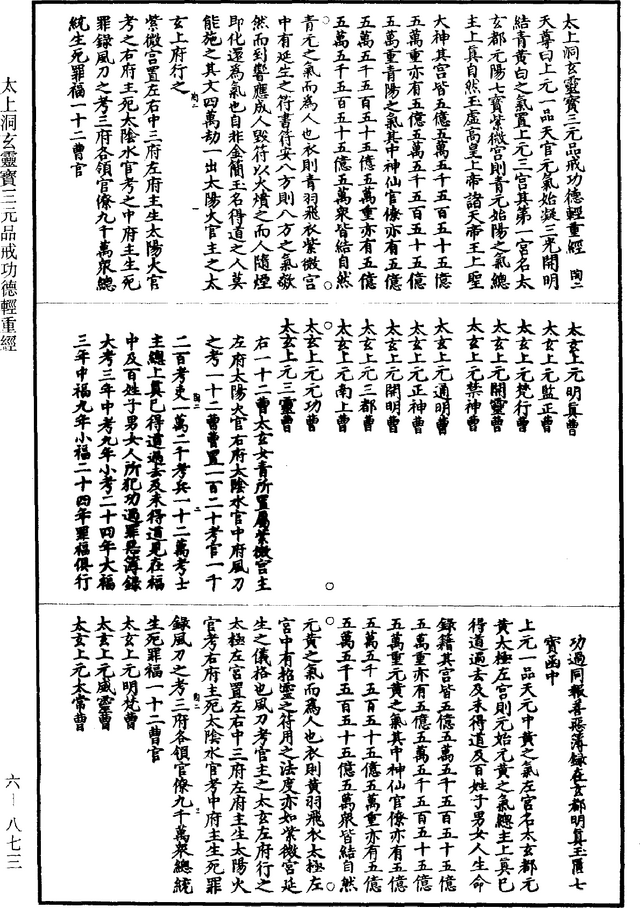 太上洞玄靈寶三元品戒功德輕重經
太上洞玄靈寶三元品戒功德輕重經 陶一
天尊曰上元一品天官元氣始凝三光開明
結青黃白之氣置上元三宮其第一宮名太
玄都元陽七寶紫微宮則青元始陽之氣總
主上真自然玉虛高皇上帝諸天帝王上聖
大神其宮皆五億五萬五千五百五十五億
五萬重亦有五億五萬五千五百五十五億
五萬重青陽之氣其中神仙官僚亦有五億
五萬五千五百五十五億五萬重亦有五億
五萬五千五百五十五億五萬眾皆結自然
青元之氣而為人也衣則青羽飛衣紫微宮
中有延生之符書符安八方則八方之氣欻
然而到響應成人毀符以火燌之而人隨煙
即化還為氣也自非金簡玉名得道之人莫
能施之其文四萬劫一出太陽火官主之太
玄上府行之
紫微宮置左右中三府左府主生太陽火官
考之右府主死太陰水官考之中府主生死
罪錄風刀之考三府各領官僚九千萬眾總
統生死罪福一十二曹官
太玄上元明真曹
太玄上元監正曹
太玄上元梵行曹
太玄上元開靈曹
太玄上元禁神曹
太玄上元通明曹
太玄上元正神曹
太玄上元開明曹
太玄上元三都曹
太玄上元南上曹
太玄上元元功曹
太玄上元三靈曹
右一十二曹太玄女青所置屬紫微宮主
左府太陽火官右府太陰水官中府風刀
之考一十二曹曹置一百二十考官一千
二百考吏一萬二千考兵一十二萬考士
主總上真已得道過去及未得道見在福
中及百姓子男女人所犯功過罪惡簿錄
大考三年中考九年小考二十四年大福
三年中福九年小福二十四年罪福俱行
功過同報善惡簿錄在玄都明真玉匱七
寶函中
上元一品天元中黃之氣左宮名太玄都元
黃太極左宮則元始元黃之氣總主上真已
得道過去及未得道及百姓子男女人生命
錄籍其宮皆五億五萬五千五百五十五億
五萬重亦有五億五萬五千五百五十五億
五萬重元黃之氣其中神仙官僚亦有五億
五萬五千五百五十五億五萬重亦有五億
五萬五千五百五十五億五萬眾皆結自然
元黃之氣而為人也衣則黃羽飛衣太極左
宮中有招靈之符用之法度亦如紫微宮延
生之儀格也風刀考官主之太玄左府行之
太極左宮置左右中三府左府主生太陽火
官考右府主死太陰水官考中府主生死罪
錄風刀之考三府各領官僚九千萬眾總統
生死罪福一十二曹官
太玄上元明梵曹
太玄上元威靈曹
太玄上元太常曹
六－八七三